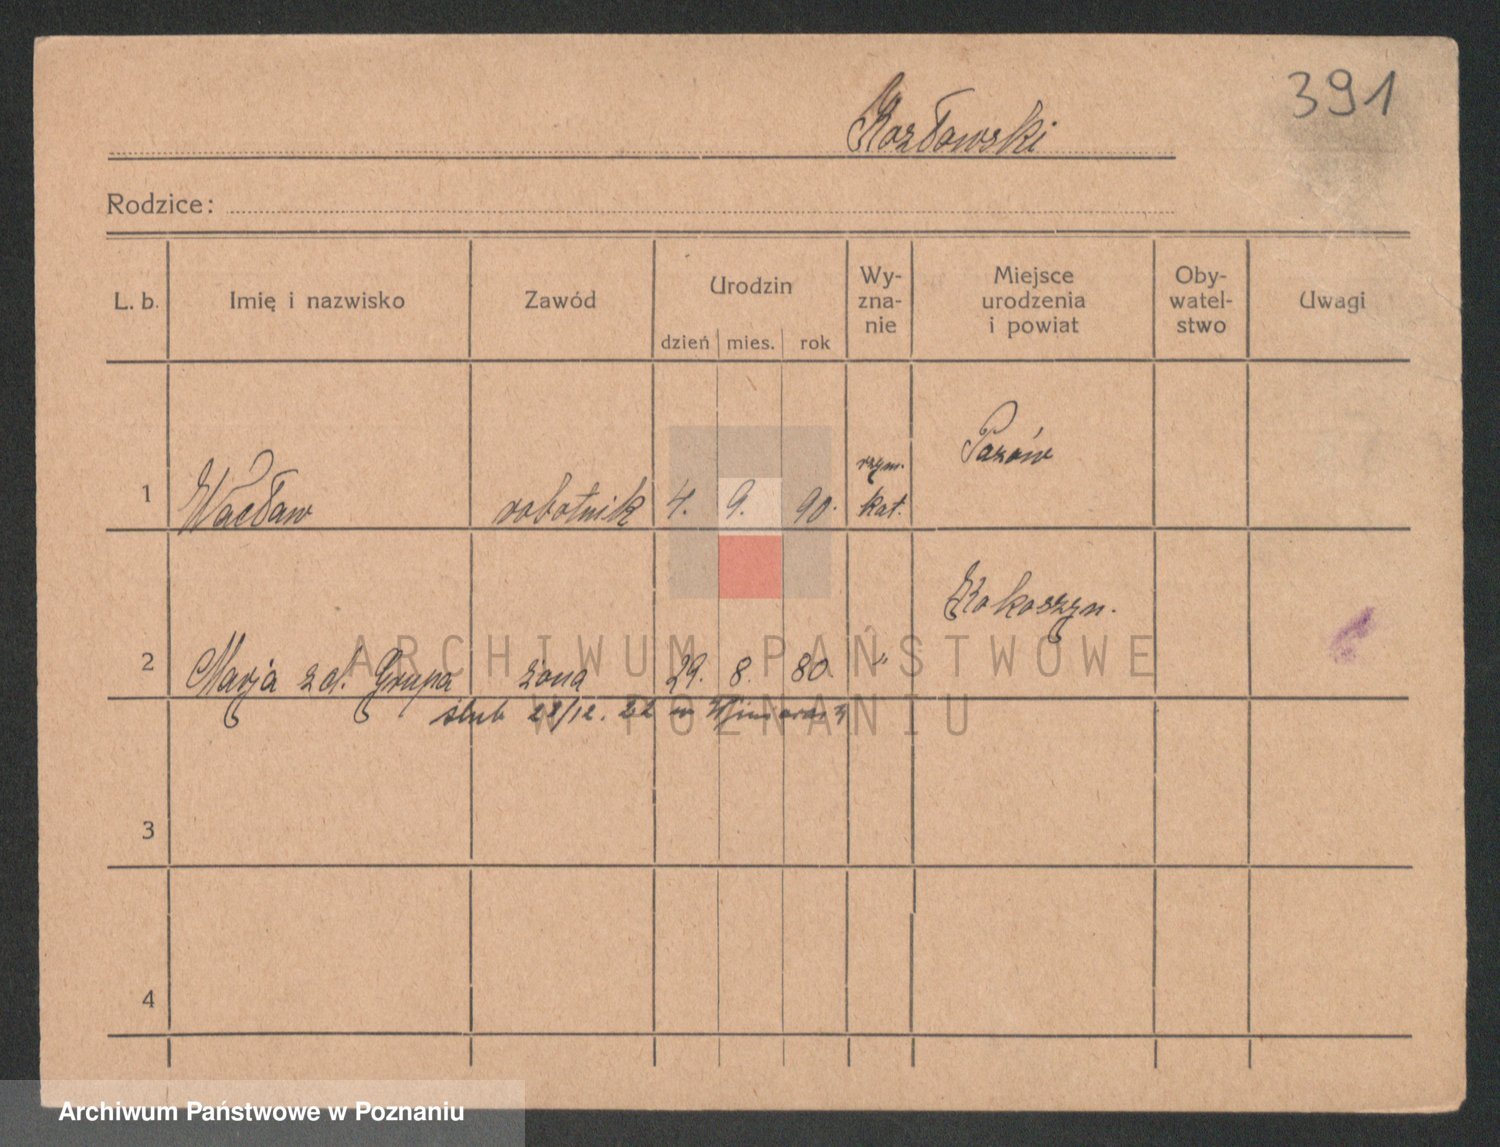 391
Kozłowski
Rodzice:
L. b. Imię i nazwisko Zawód Urodzin dzień mies. rok Wy-zna-nie Miejsce urodzenia i powiat Oby-watel-stwo Uwagi
1 Wacław robotnik 4. 9. 90. rzym. kat.
2 Marja zd. Grupa żona 29. 8. 80. " Kokoszyn.
ślub 28/12. 22 w
3
4
ARCHIWUM PAŃSTWOWE
W POZNANIU
Archiwum Państwowe w Poznaniu